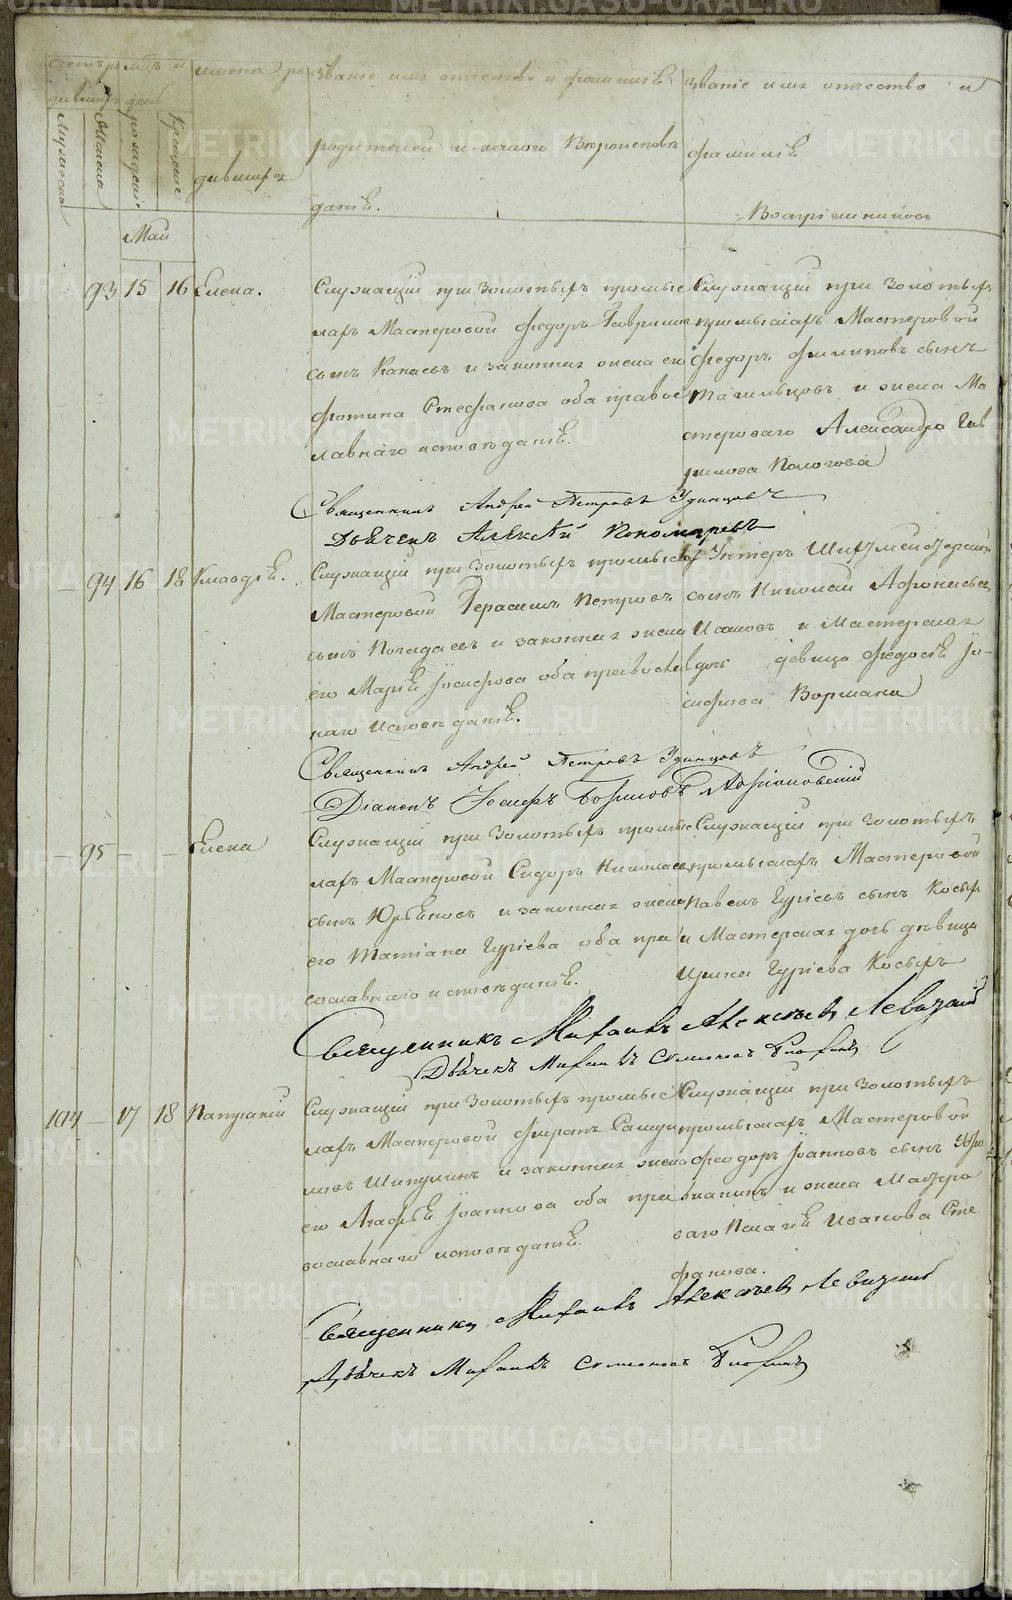 Счетъ родивш и
имена ро
Званіе имя отчество и фамиліѣ
Званіе имя отчество и
мужеска
женска
рожденіе
крещеніе
дившихъ
родителей и какого Вѣроисповѣ
даніѣ.
фамиліѣ
Воспріемниковъ
Май
93 15 16 Елена.
Служащій при Золотыхъ промыс
лахъ Мастеровой Федоръ Гаврилов
сынъ Канаевъ и законная жена его
Фотина Стефанова оба правос
лавнаго исповѣданіѣ.
Служащій при Золотыхъ
промыслахъ Мастеровой
Федоръ Филиповъ сынъ
Тагильцовъ и жена Ма
стероваго Александра Гав
рилова Кологова
Священникъ Андрей Петровъ Удинцовъ
Дьячекъ Алексѣй Пономаревъ
94 16 18 Клавдіѣ.
Служащій при Золотыхъ промыслах
Мастеровой Герасимъ Петровъ
сынъ Погадаевъ и законная жена
его Маріѣ Іосифова оба православ
наго исповѣданіѣ.
Унтеръ Шихтмейстерской
сынъ Николай Афонасьев
Исаковъ и Мастерская
дочь девица Федосіѣ Іо-
сифова Вормана
Священникъ Андрей Петровъ Удинцовъ
Діаконъ Іосифъ Борисовъ
95 Елена
Служащій при Золотыхъ промыс
лахъ Мастеровой Сидоръ Николаев
сынъ Юрѣковъ и законная жена
его Татіана Гуріева оба пра
вославнаго исповѣданіѣ.
Служащій при Золотыхъ
промыслахъ Мастеровой
Павелъ Гуріевъ сынъ Косых
и Мастерская дочь дѣвица
Гуріева Косыхъ
Священникъ Михаилъ Алексѣевъ Левицкій
Дьячекъ Михаилъ Симеоновъ
104 17 18 Капустій
Служащій при Золотыхъ промыс
лахъ Мастеровой Фирсъ Самуи
ловъ Шипулинъ и законная жена
его Агафьѣ Іоаннова оба пра
вославнаго исповѣданіѣ.
Служащій при Золотыхъ
промыслахъ Мастеровой
Феодоръ Іоанновъ сынъ
и жена Мастеро
ваго Пелагіѣ Иванова Сте
фанова.
Священникъ Михаилъ Алексѣевъ Левицкій
Дьячекъ Михаилъ Симеоновъ
METRIKI.GASO-URAL.RU